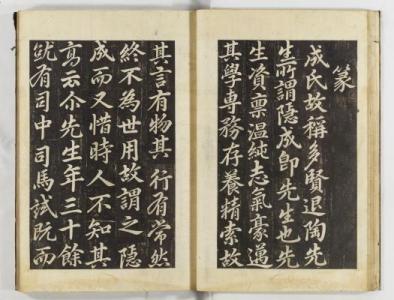 篆
成氏故稱多賢退陶先
生所謂隱成卽先生也先
生資稟温純志氣豪邁
其學專務存養精索故
其言有物其行有常然
終不為世用故謂之隱
成而又惜時人不知其
高云尒先生年三十餘
就有司中司馬試既而